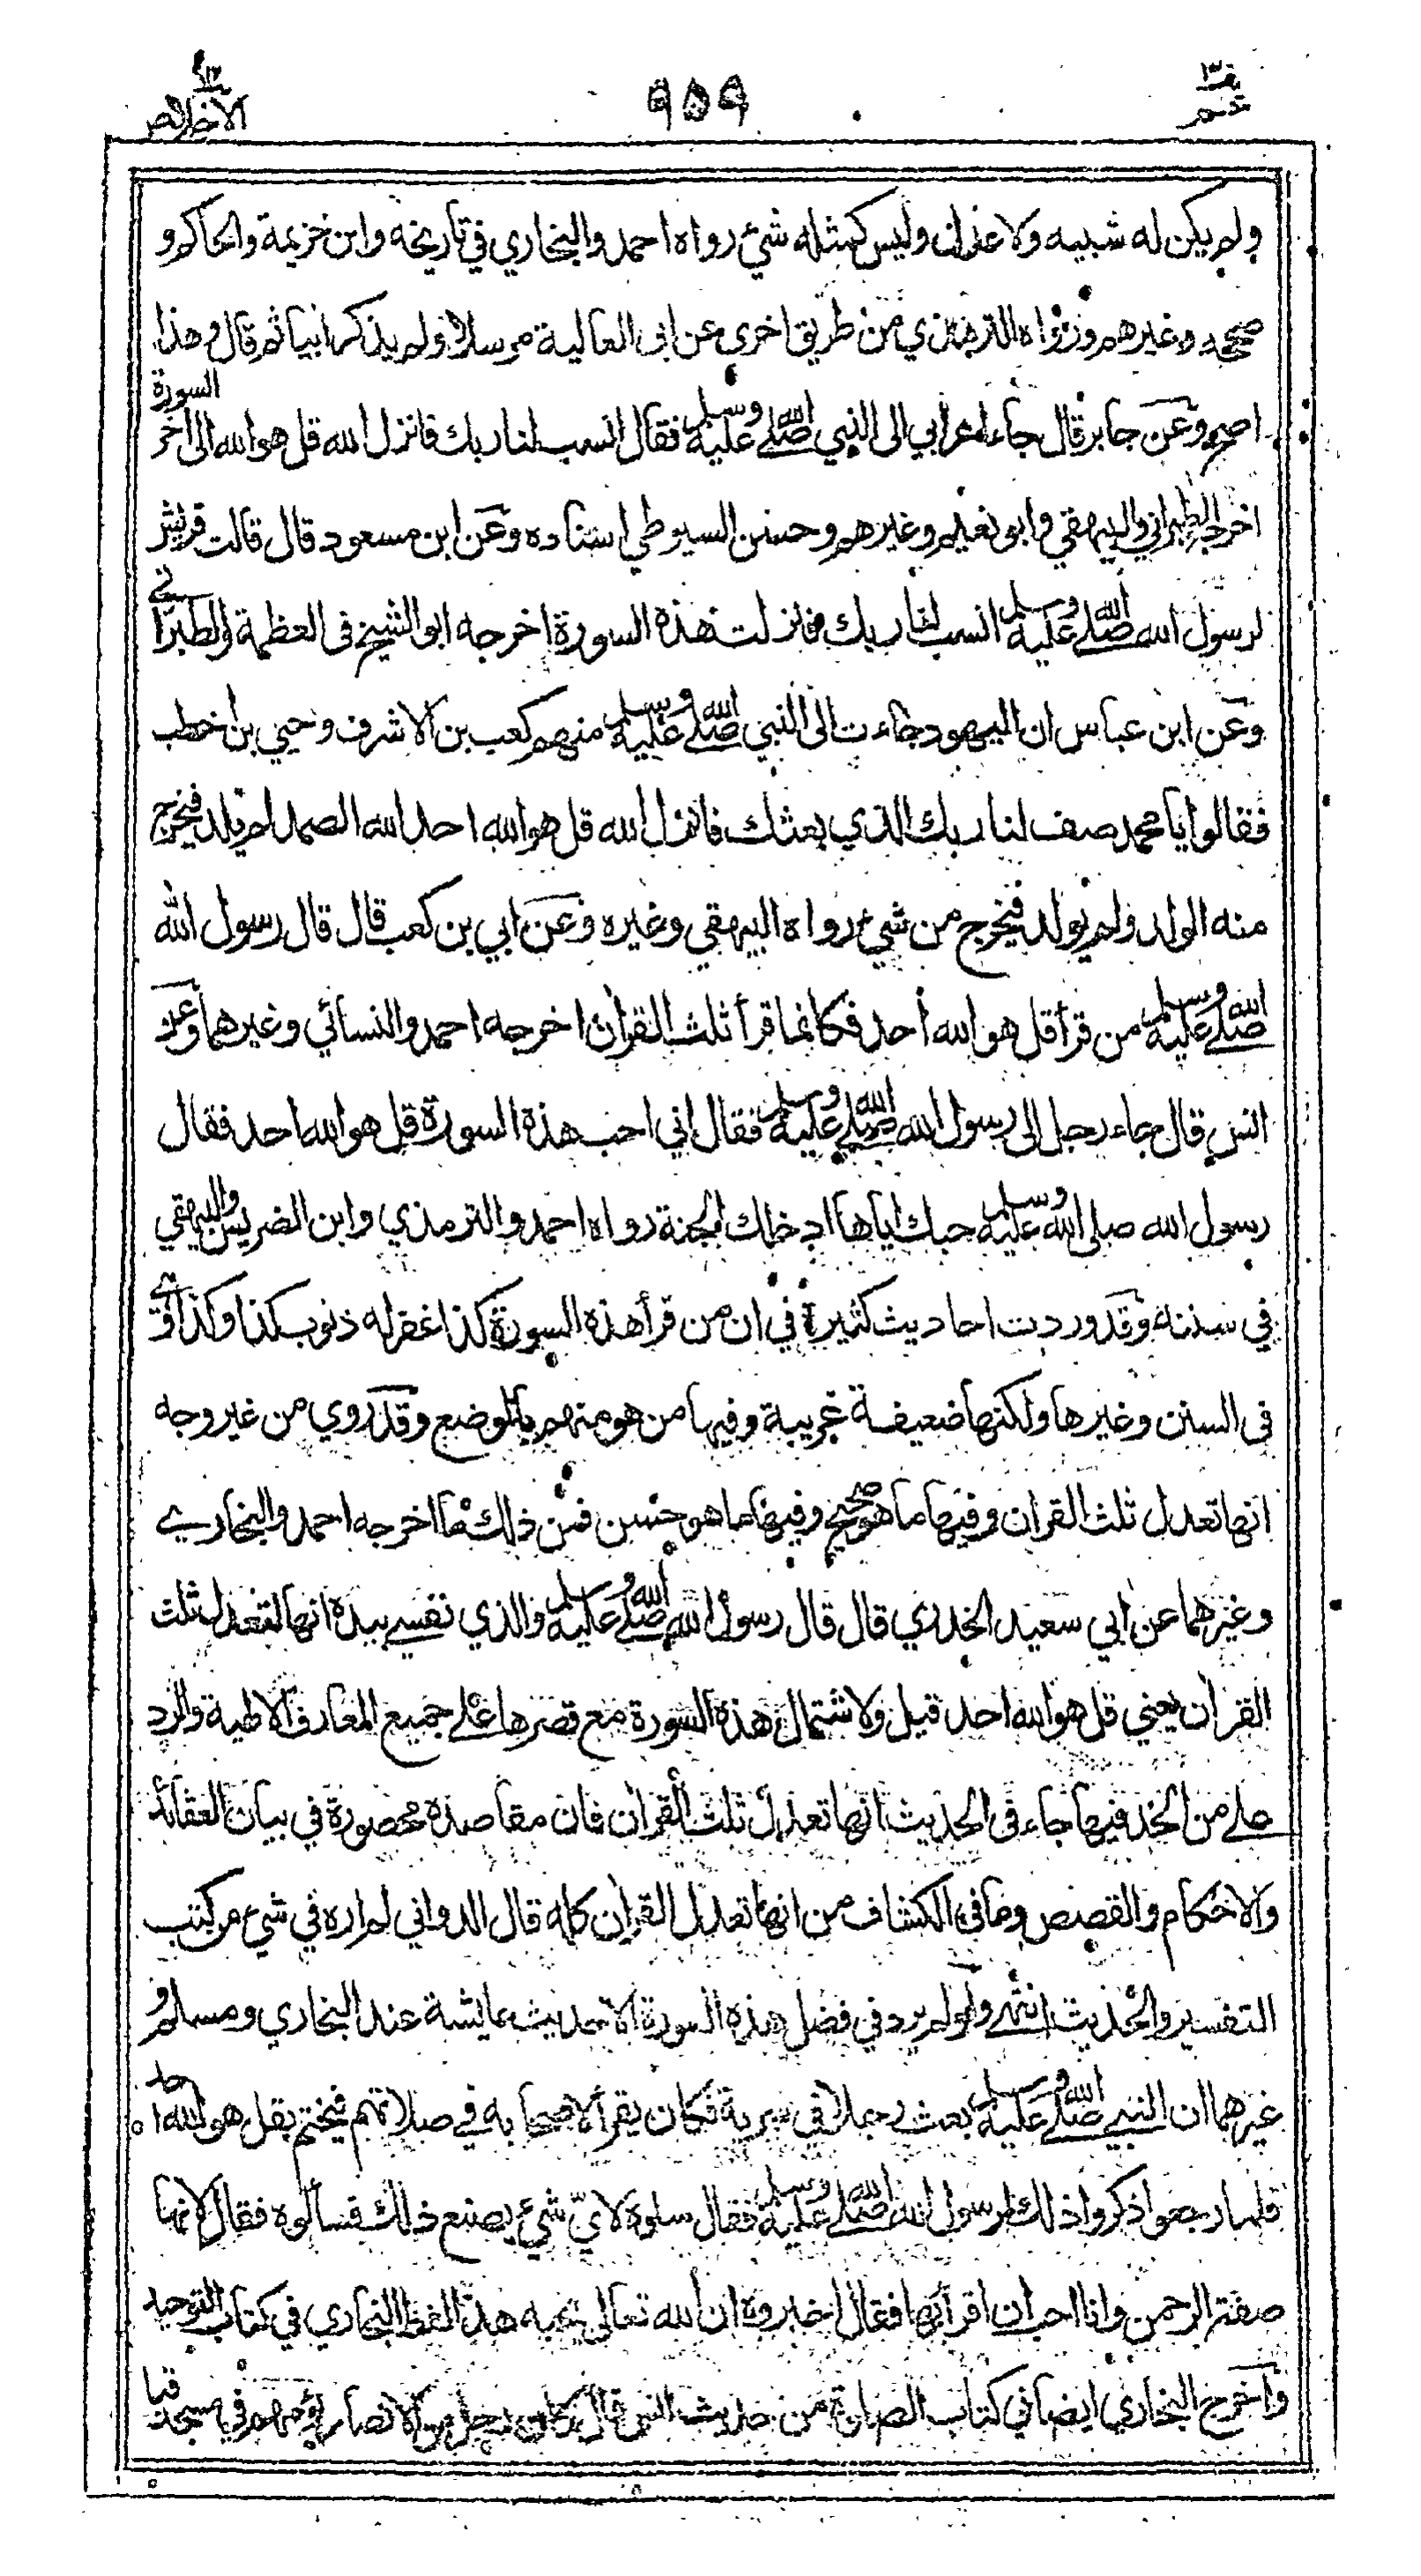 عم ٣٠
٤٥٩
الاخلاص ١١٢
ولم يكن له شبيه ولا عدل وليس كمثله شيء رواه احمد والبخاري في تاريخه وابن خزيمة والحاكم و
صححه وغيرهم ورواه الترمذي من طريق اخرى عن ابي العالية مرسلا ولم يذكر ابيا ثم قال وهذا
اصح وعن جابر قال جاء اعرابي الى النبي صلى الله عليه وسلم فقال انسب لنا ربك فانزل الله قل هو الله الى اخر السورة
اخرجه الطبراني والبيهقي وابو نعيم وغيرهم وحسن السيوطي اسناده وعن ابن مسعود قال قالت قريش
لرسول الله صلى الله عليه وسلم انسب لنا ربك فانزلت هذه السورة اخرجه ابو الشيخ في العظمة والطبراني
وعن ابن عباس ان اليهود جاءت الى النبي صلى الله عليه وسلم منهم كعب بن الاشرف وحيي بن اخطب
فقالوا يا محمد صف لنا ربك الذي بعثك فانزل الله قل هو الله احد الله الصمد لم يلد فيخرج
منه الولد ولم يولد فيخرج من شيء رواه البيهقي وغيره وعن ابي بن كعب قال قال رسول الله
صلى الله عليه وسلم من قرأ قل هو الله أحد فكانما قرأ ثلث القرأن اخرجه احمد والنسائي وغيرهما وعن
انس قال جاء رجل الى رسول الله صلى الله عليه وسلم فقال اني احب هذه السورة قل هو الله احد فقال
رسول الله صلى الله عليه وسلم حبك اياها ادخلك الجنة رواه احمد والترمذي وابن الضريس والبيهقي
في سننه وقد وردت احاديث كثيرة في ان من قرأ هذه السورة كذا غفر له ذنوب كذا وكذا وهي
في السنن وغيرها ولكنها ضعيفة غريبة وفيها من هو متهم بالوضع وقد روي من غير وجه
انها تعدل ثلث القران وفيها ما هو صحيح وفيها ما هو حسن فمن ذلك ما اخرجه احمد والبخاري
وغيرهما عن ابي سعيد الخدري قال قال رسول الله صلى الله عليه وسلم والذي نفسي بيده انها لتعدل ثلث
القران يعني قل هو الله احد قيل ولاشتمال هذه السورة مع قصرها على جميع المعارف الالهية والرد
على من الحد فيها جاء في الحديث انها تعدل ثلث القرأن فان مقاصده محصورة في بيان العقائد
والاحكام والقصص وما في الكشاف من انها تعدل القرأن كله قال الدواني لم اره في شيء من كتب
التفسير والحديث انتهى ولو لم يرد في فضل هذه السورة الا حديث عايشة عند البخاري ومسلم و
غيرهما ان النبي صلى الله عليه وسلم بعث رجلا في سرية فكان يقرأ لاصحابه في صلاتهم فيختم بقل هو الله احد
فلما رجعوا ذكروا ذلك لرسول الله صلى الله عليه وسلم فقال سلوه لاي شيء يصنع ذلك فسألوه فقال لانها
صفة الرحمن وانا احب ان اقرأ بها فقال اخبروه ان الله تعالى يحبه هذا لفظ البخاري في كتاب التوحيد
واخرج البخاري ايضا في كتاب الصلوة من حديث انس قال كان رجل من الانصار يؤمهم في مسجد قبا